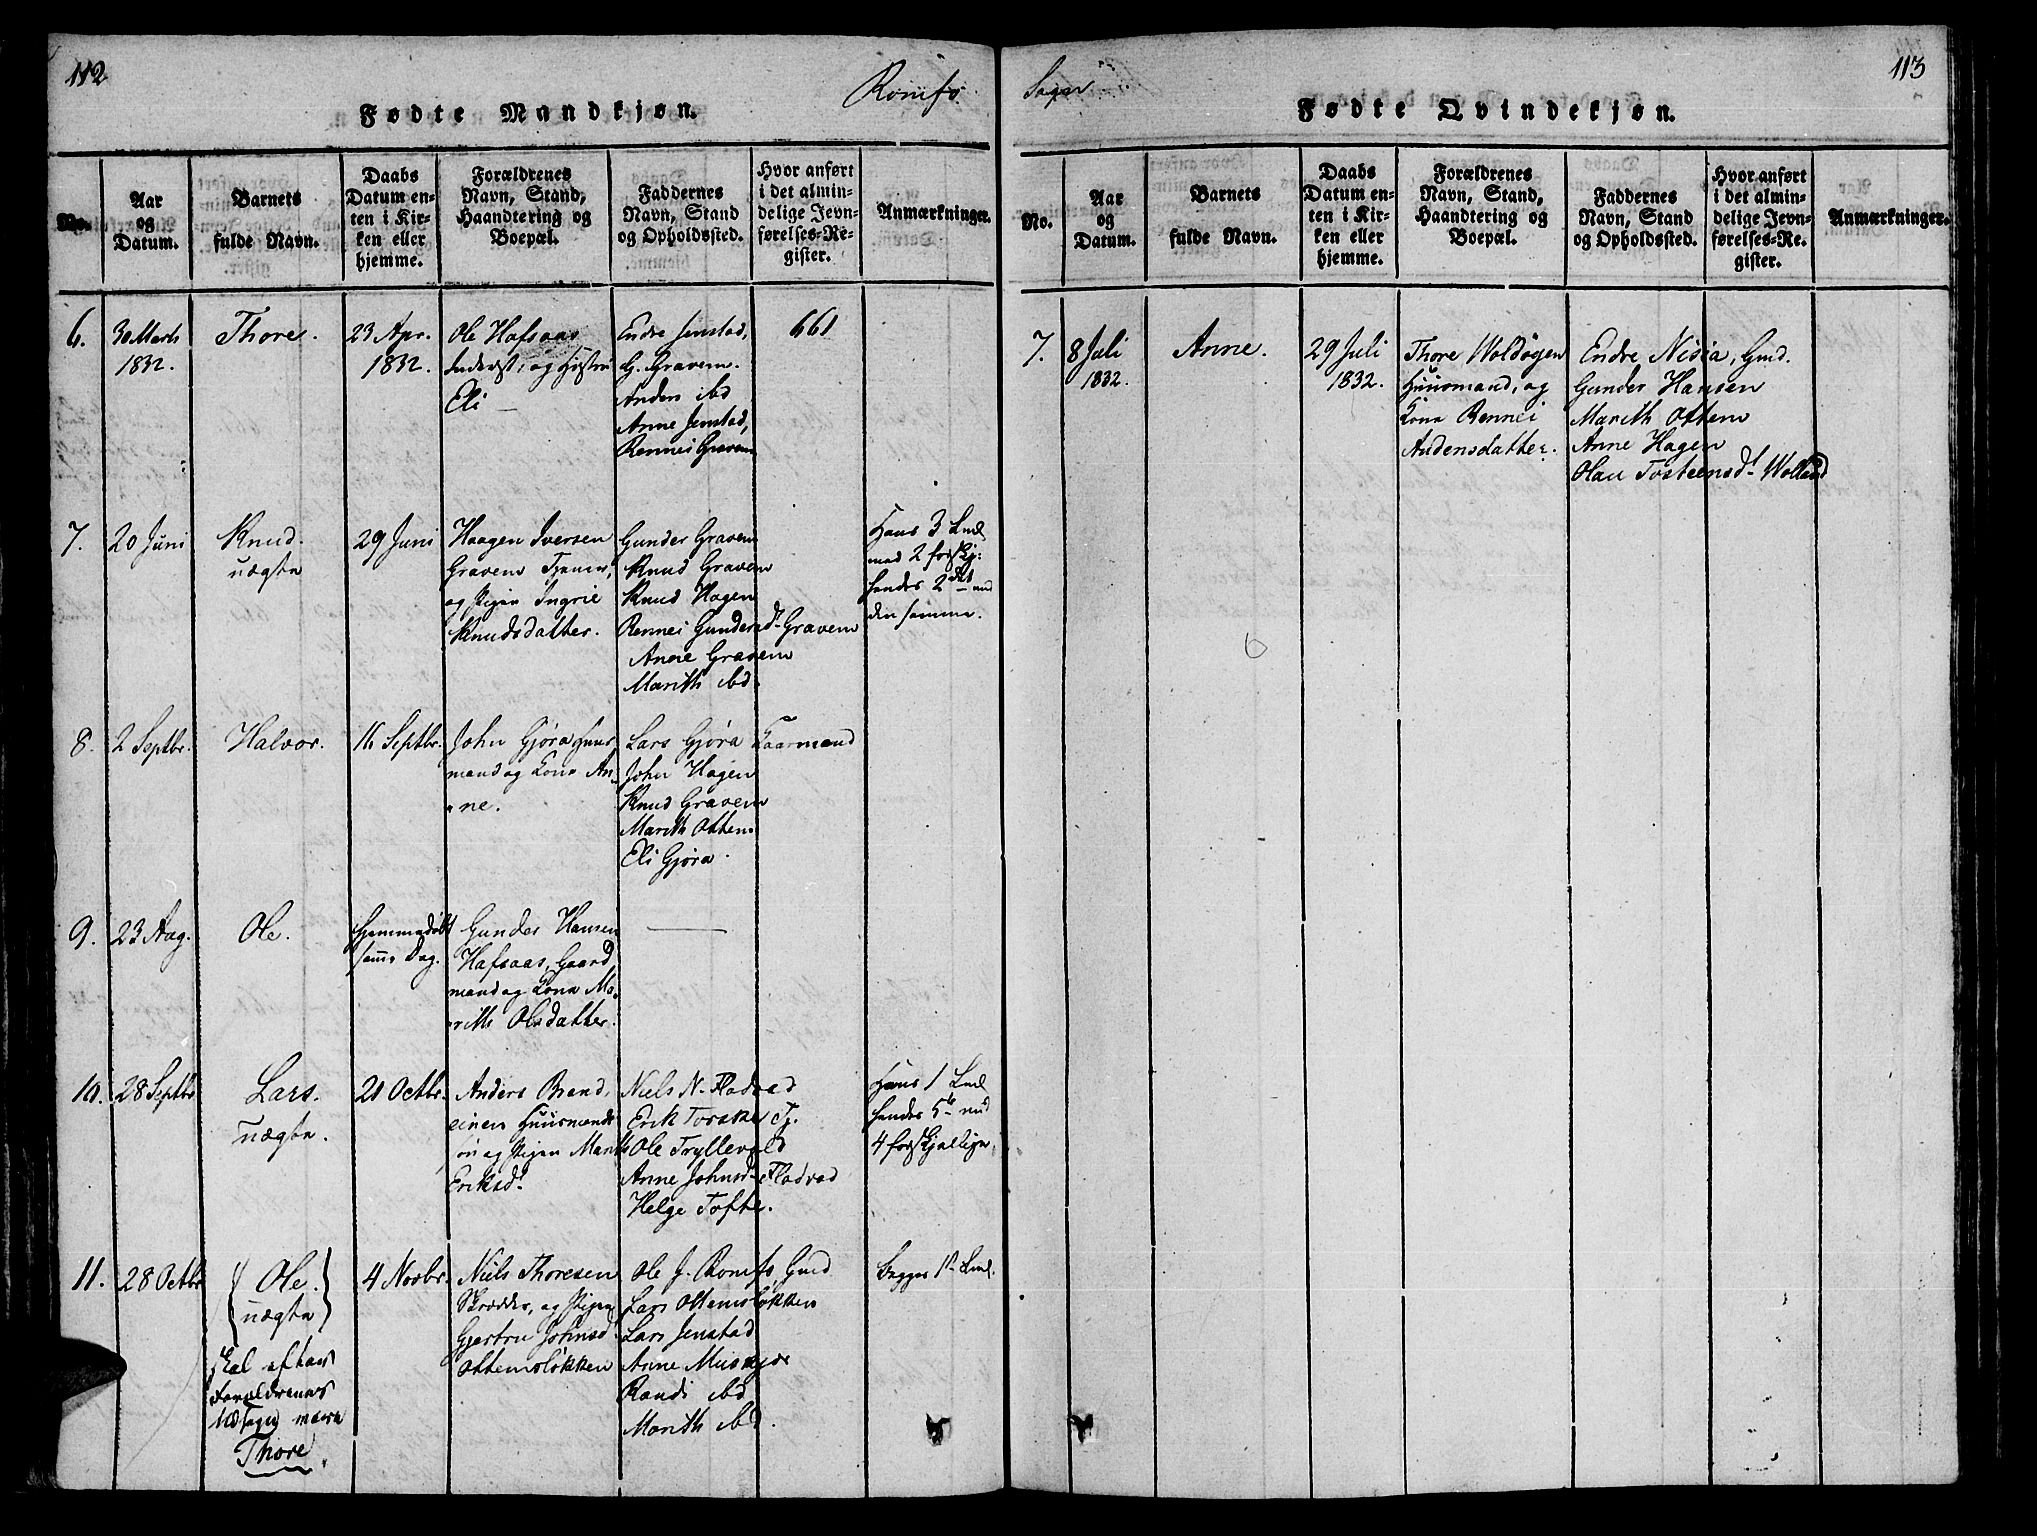 112
Romfo
Fødte Mandkjøn.
No.
Aar
og
Datum.
Barnets
fulde Navn.
Daabs
Datum en-
ten i Kir-
ken eller
hjemme.
Forældrenes
Navn, Stand,
Haandtering og
Boepæl.
Faddernes
Navn, Stand
og Opholdssted.
Hvor anført
i det almin-
delige Jevn-
førelses-Re-
gister.
Anmærkninger.
6.
30 Marts
1832.
Thore.
23 Apr.
1832.
Ole Hafsaas
Inderst, og Hustru
Eli
Endre Jenstad,
G. Gravem.
Anders ibd
Anne Jenstad,
Rennei Gravem
661
7.
20 Juni
Knud.
uægte
29 Juni
Haagen Iversen
Gravem Tjener,
og Pigen Ingrie
Knudsdatter.
Gunder Gravem
Knud Gravem
Knud Hagen
Rennei Gundersd. Gravem
Anne Gravem
Marith ibd.
Hans 3 Leml
med 2 forskj:
hendes 2det med
den samme.
8.
2 Septbr.
Halvor.
16 Septbr.
John Gjøra Huus-
mand og Kone An-
ne.
Lars Gjøra Gaarmand
John Hagen
Knud Gravem
Marith Ottem
Eli Gjøra.
9.
23 Aug.
Ole.
hjemmedøbt
samme Dag.
Gunder Hansen
Hafsaas, Gaard
mand og Kone Ma-
rith Olsdatter.
10.
28 Septbr
Lars.
uægte.
21 Octbr.
Anders Brand,
einen Huusmands
søn og Pigen Marith
Eriksd.
Niels N. Fladvad
Erik Torske Tj.
Ole Tryllevold
Anne Johnsd. Fladvad
Helge Tofte.
Hans 1 Leml
hendes 5te med
4 forskjellige.
11.
28 Octbr
Ole.
uægte
skal efter
Forældrenes
Udsagn være
Thore.
4 Novbr.
Niels Thoresen
Skrædder, og Pigen
Gjertru Johnsd.
Ottemsløkken
Ole J. Romfo, Gmd
Lars Ottemsløkken
Lars Jenstad
Anne Musgjer
Randi ibd
Marith ibd.
Begges 1ste Leml.
Sogn
113
Fødte Qvindekjøn.
No.
Aar
og
Datum.
Barnets
fulde Navn.
Daabs
Datum en-
ten i Kir-
ken eller
hjemme.
Forældrenes
Navn, Stand,
Haandtering og
Boepæl.
Faddernes
Navn, Stand
og Opholdssted.
Hvor anført
i det almin-
delige Jevn-
førelses-Re-
gister.
Anmærkninger.
7.
8 Juli
1832.
Anne.
29 Juli
1832.
Thore Woldøgen
Huusmand, og
Kone Rennei
Audensdatter.
Endre Nisia, Gmd.
Gunder Hansen
Marith Ottem
Anne Hagen
Olau Tosteensdt Wolland
6